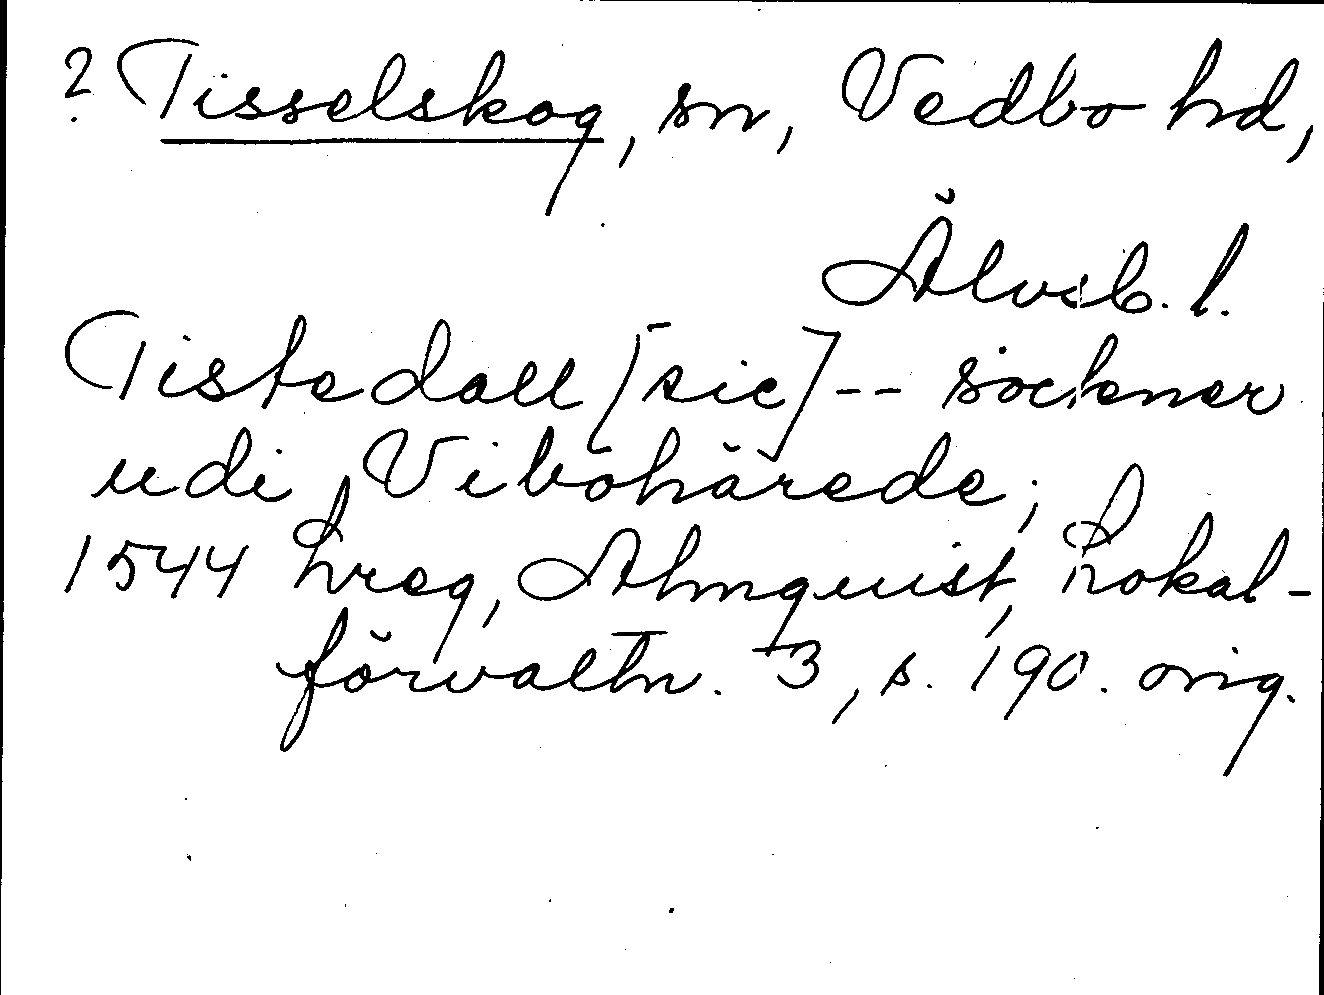 ? Tisselskog, sn, Vedbo hd,
Älvsb. l.
Tistedall [sic] -- sockener
udi Vibohärede;
1544 Lreg, Almquist, Lokal-
förvaltn. 3, s. 190. orig.